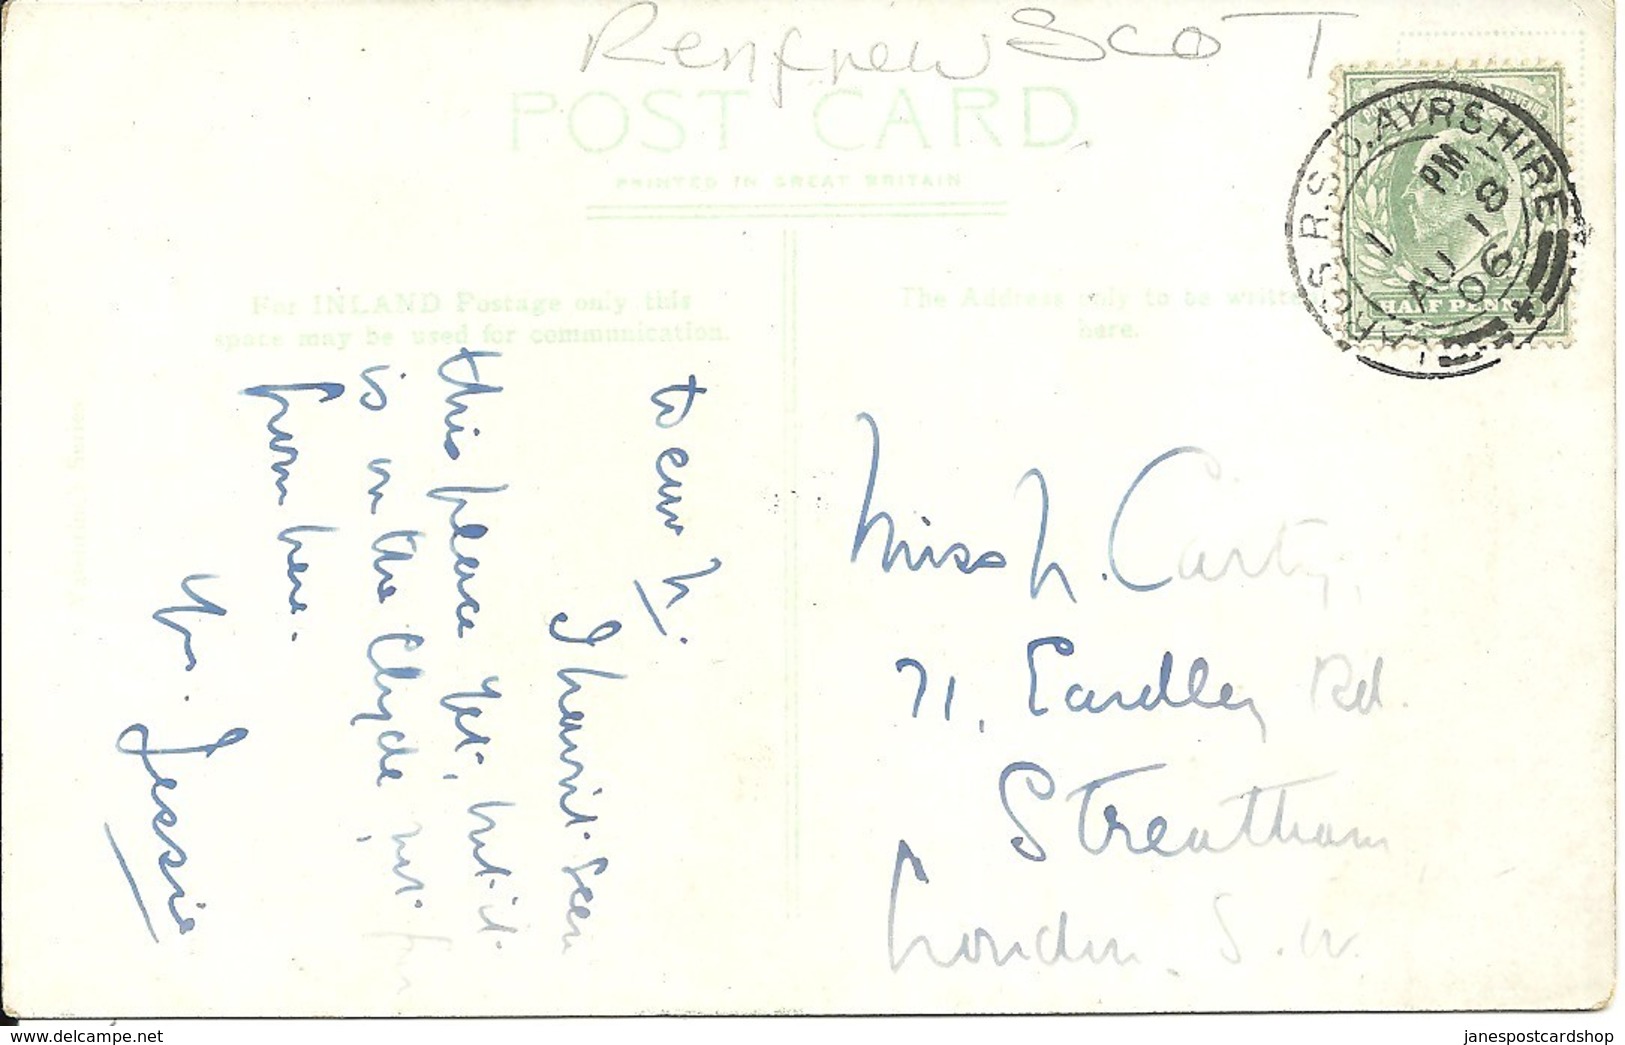 Renfrew SCOT
POST CARD.
PRINTED IN GREAT BRITAIN
For INLAND Postage only this
space may be used for communication.
The Address only to be written
here.
R.S.O. AYRSHIRE
1 PM
AU 18
06
HALF PENNY
Dear M.
I haven't seen
this place yet, but it
is on the Clyde, not far
from here.
Yrs. Jessie
Miss M. Carty,
71, Eardley Rd.
Streatham
London. S.W.
delcampe.net
janespostcardshop